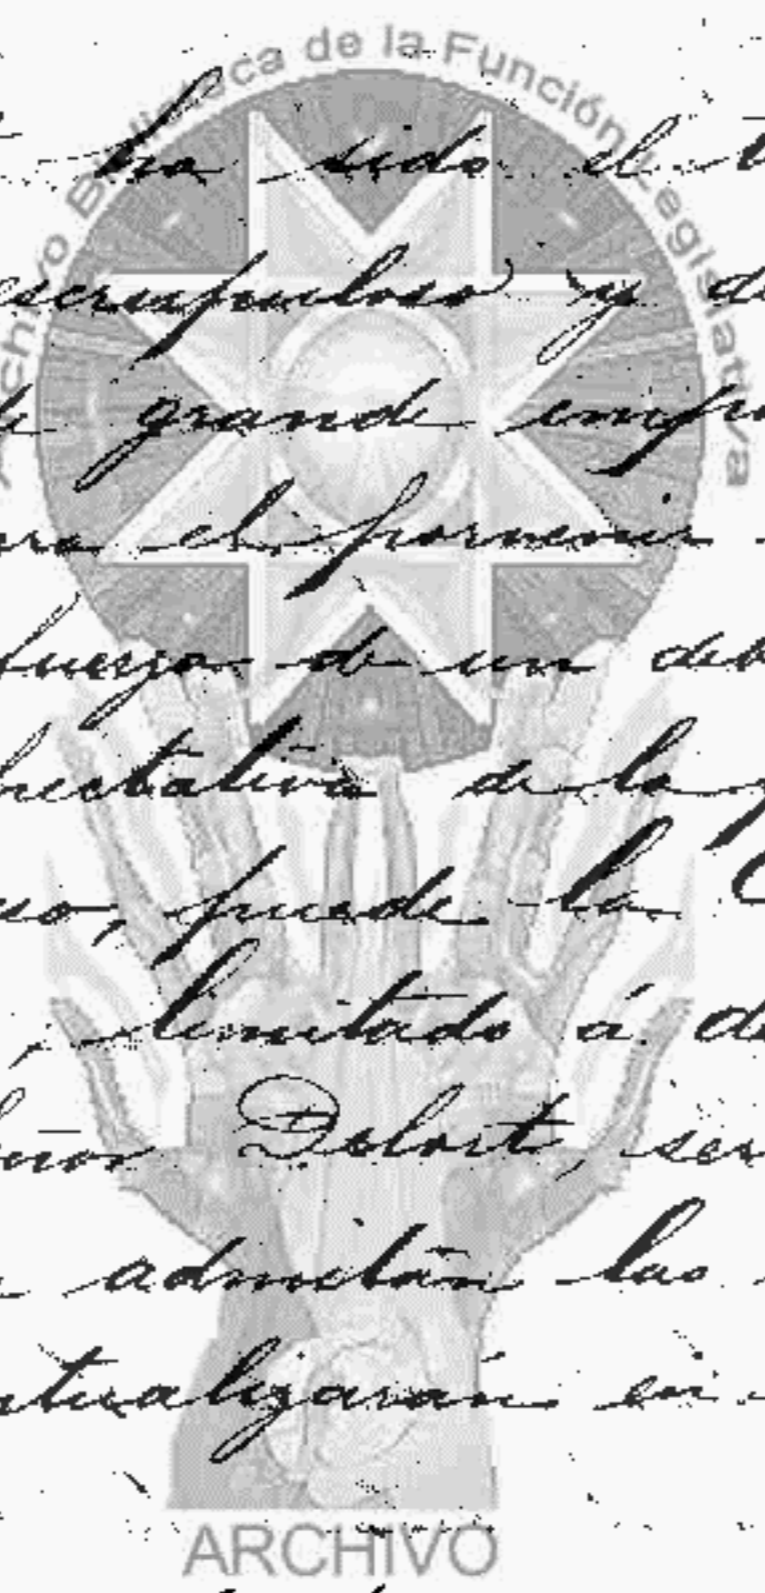 Archivo Biblioteca de la Función Legislativa
ha sido el
escrupuloso y de
de grande empr
ra el porvenir
fuerzo de un deb
pectativa de la
so, puede la C
, limitado á de
eñor Delort, ser
admitan las
ntualizarán en
ARCHIVO